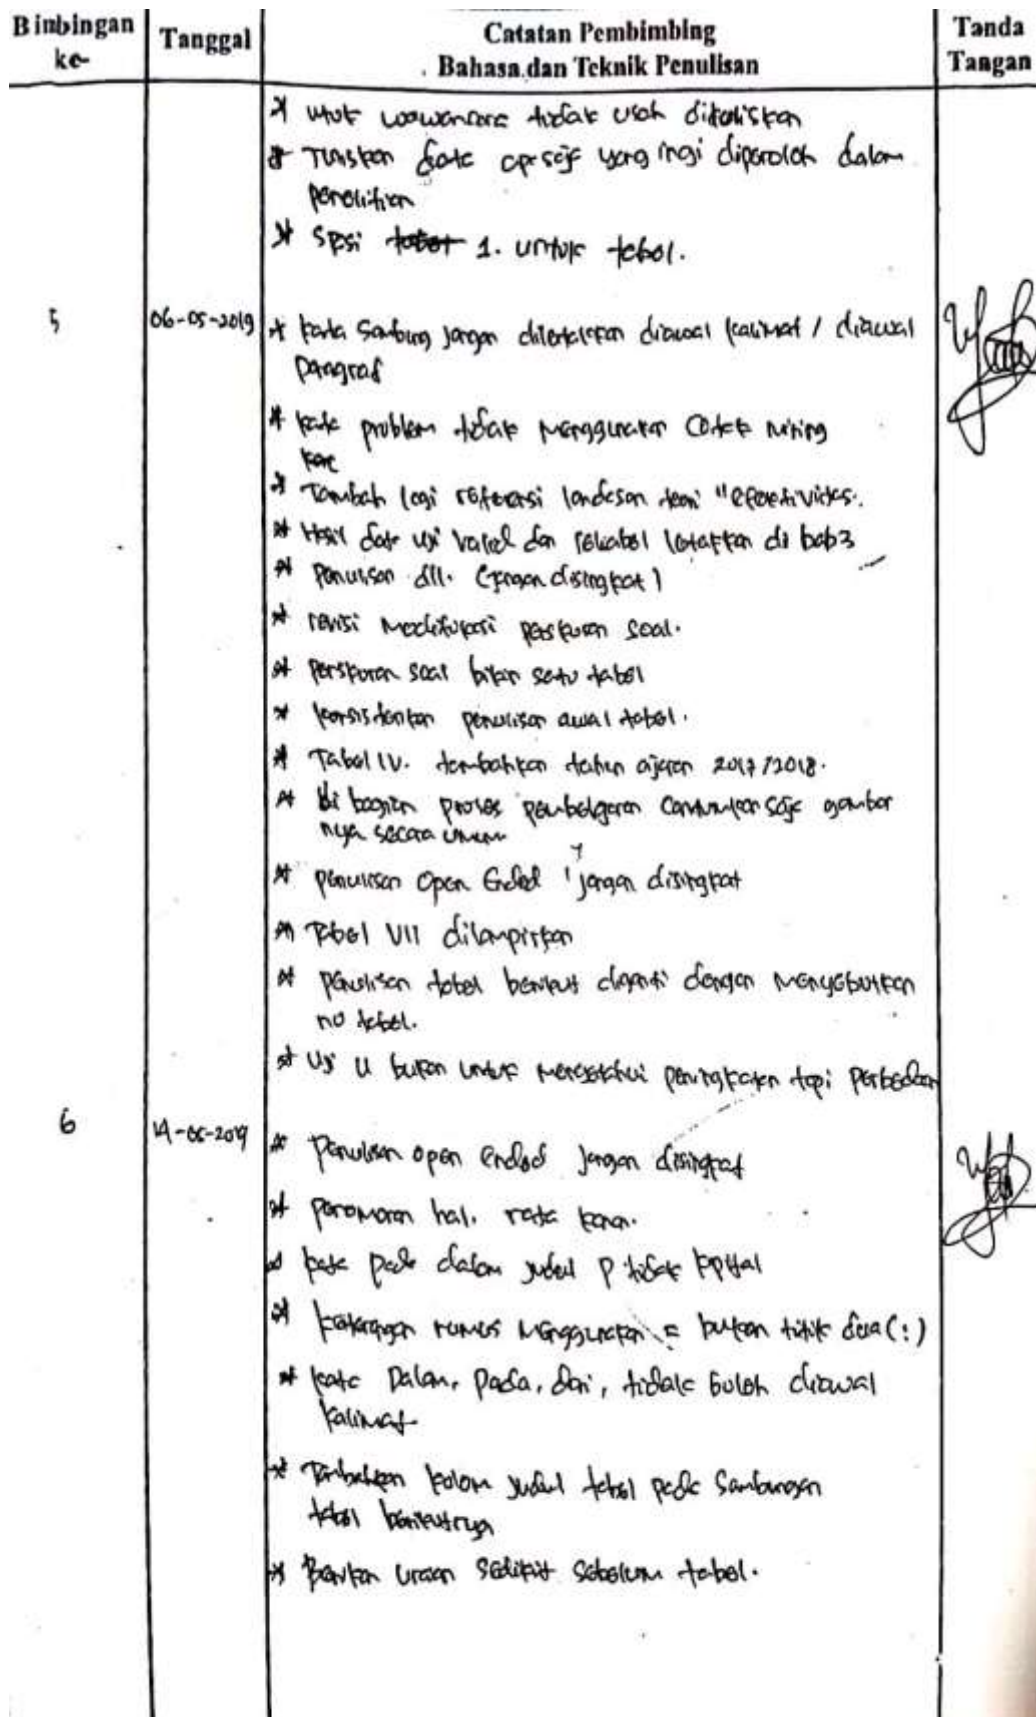 Bimbingan ke-
Tanggal
Catatan Pembimbing
Bahasa dan Teknik Penulisan
Tanda Tangan
* wawancara tidak usah dituliskan
* Tuliskan data apa saja yang ingi diperoleh dalam
penelitian
* Spasi tabel 1. untuk tabel.
5
06-05-2019
* kata Sambung jangan diletakkan diawal kalimat / diawal
paragraf
* kata problem tidak menggunakan cetak miring
* Tambah lagi referensi landasan teori "efektivitas.
* Hasil data uji valid dan reliabel letakkan di bab 3
* Penulisan dll. (jangan disingkat)
* revisi modifikasi penskoran soal.
* Penskoran soal bikin satu tabel
* konsistenkan penulisan awal tabel.
* Tabel IV. tambahkan tahun ajaran 2017/2018.
* di bagian proses pembelajaran cantumkan saja gambar
nya secara umum
* penulisan Open Ended jangan disingkat
* Tabel VII dilampirkan
* penulisan tabel berikut diganti dengan menyebutkan
no tabel.
* Uji U bukan untuk mengetahui peningkatan tapi perbedaan
6
14-05-2019
* Penulisan open ended jangan disingkat
* penomoran hal. rata kanan.
* kata pada dalam judul p tidak kpital
* keterangan rumus menggunakan = bukan titik dua (:)
* kata Dalam, Pada, dari, tidak boleh diawal
kalimat
* Tambahkan kolom judul tabel pada Sambungan
tabel berikutnya
* Berikan uraian sedikit sebelum tabel.